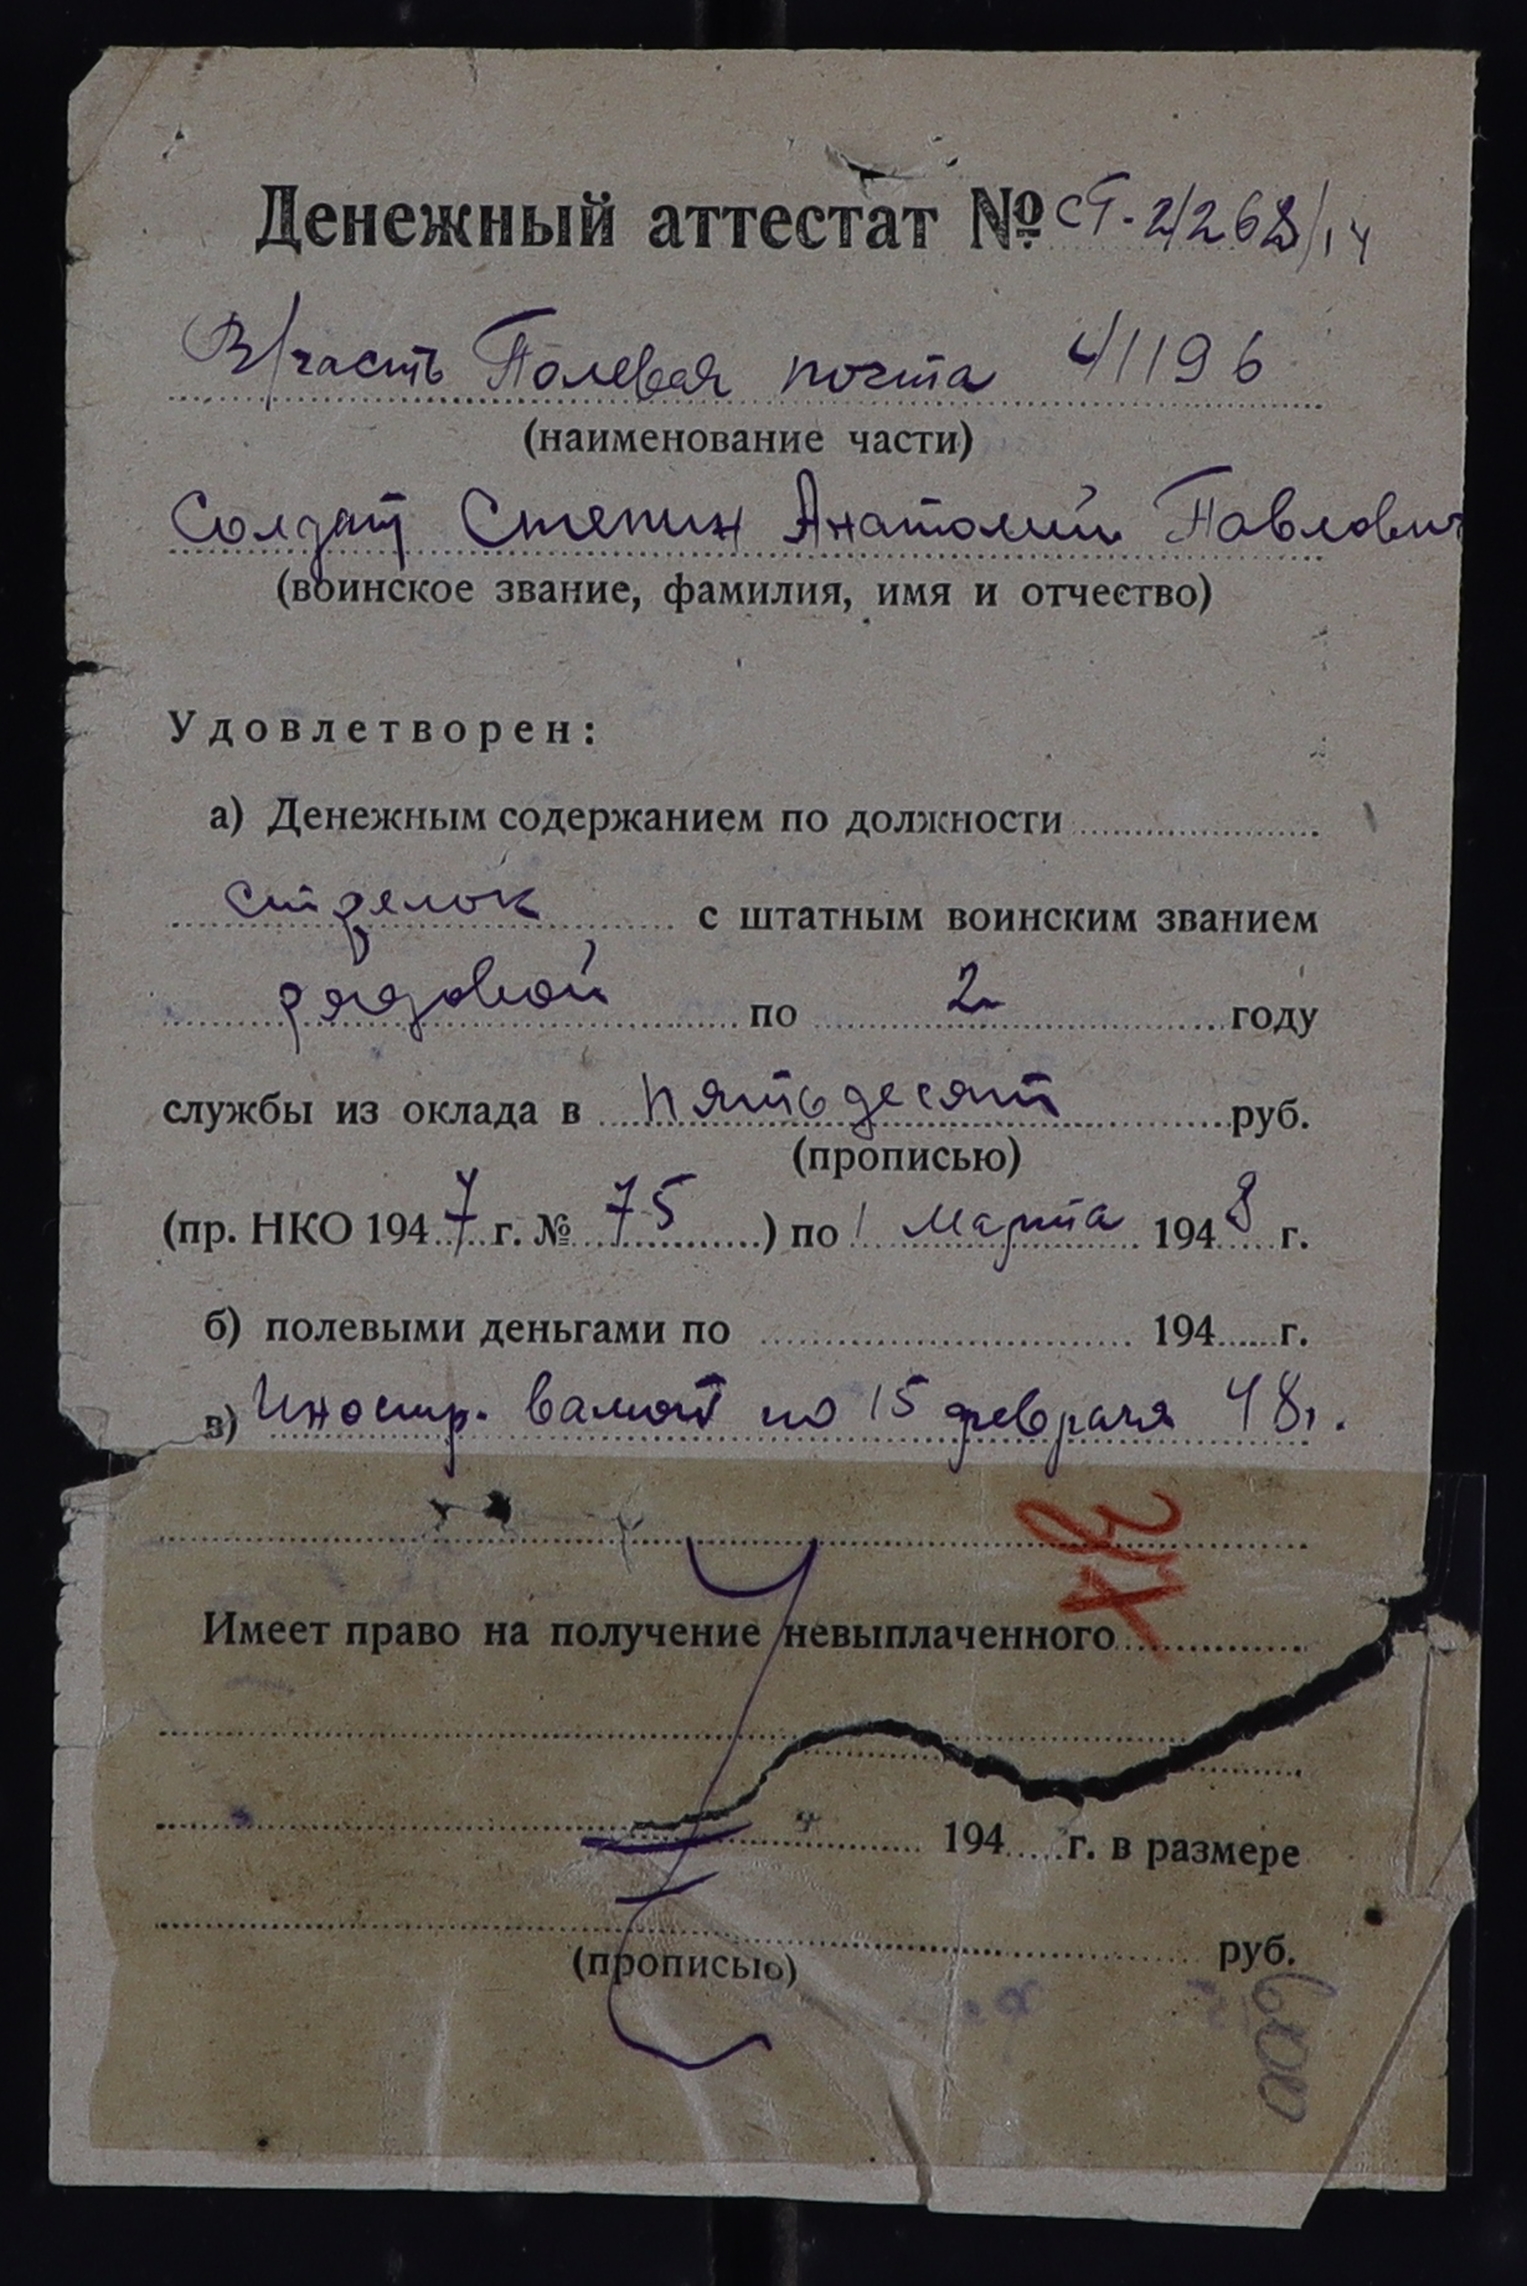 Денежный аттестат № СТ-2/268/14
В/часть Полевая почта 41196
(наименование части)
Солдат Степин Анатолий Павлович
(воинское звание, фамилия, имя и отчество)
Удовлетворен:
а) Денежным содержанием по должности
стрелок с штатным воинским званием
рядовой по 2 году
службы из оклада в пятьдесят руб.
(прописью)
(пр. НКО 1947 г. № 75) по 1 марта 1948 г.
б) полевыми деньгами по 194 г.
в) Иностр. валют по 15 февраля 48г.
Имеет право на получение невыплаченного
194 г. в размере
руб.
(прописью)